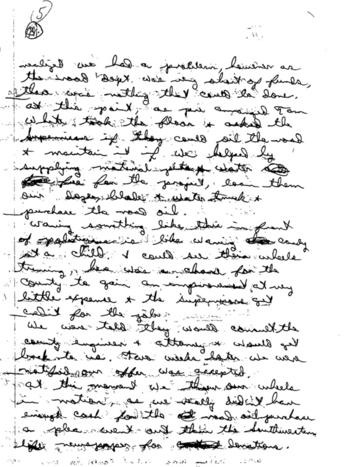 5
realized we had a problem, however as
the road dept. was very short of funds,
there was nothing that could be done.
at this point, as pre arranged Tom
White took the floor & asked the
supervisors if they could oil the road
& maintain it if we helped by
supplying material, water
free for the project, loan them
our dozer, blade & water truck &
purchase the road oil.
Waving something like this in front
of politicians is like waving candy
at a child. I could see their wheels
turning, here was a chance for the
county to gain an improvement at very
little expense & the supervisors get
credit for the job.
We was told they would consult the
county engineer & attorney & would get
back to us. Two weeks later we were
notified our offer was accepted.
at this moment we threw our wheels
in motion, as we really didn't have
enough cash for the road oil purchase
a plea went out thru the Southwestern
newspaper for donations.